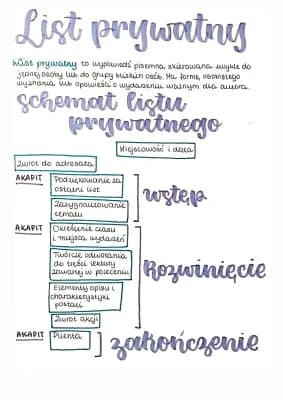 List prywatny
List prywatny to wypowiedź pisemna skierowana zwykle do
jednej osoby lub do grupy bliskich osób. Ma formę osobistego
wyznania lub opowieści o wydarzeniu ważnym dla autora.
schemat listu
prywatnego
Miejscowość i data
Zwrot do adresata
AKAPIT Podziękowanie za
ostatni list
Zasygnalizowanie
tematu
wstęp
AKAPIT Określenie czasu
i miejsca wydarzeń
Twórcze odwołania
do treści lektury
zawartej w poleceniu
Rozwinięcie
Elementy opisu i
charakterystyki
postaci
Zwrot akcji
AKAPIT Puenta
zakończenie